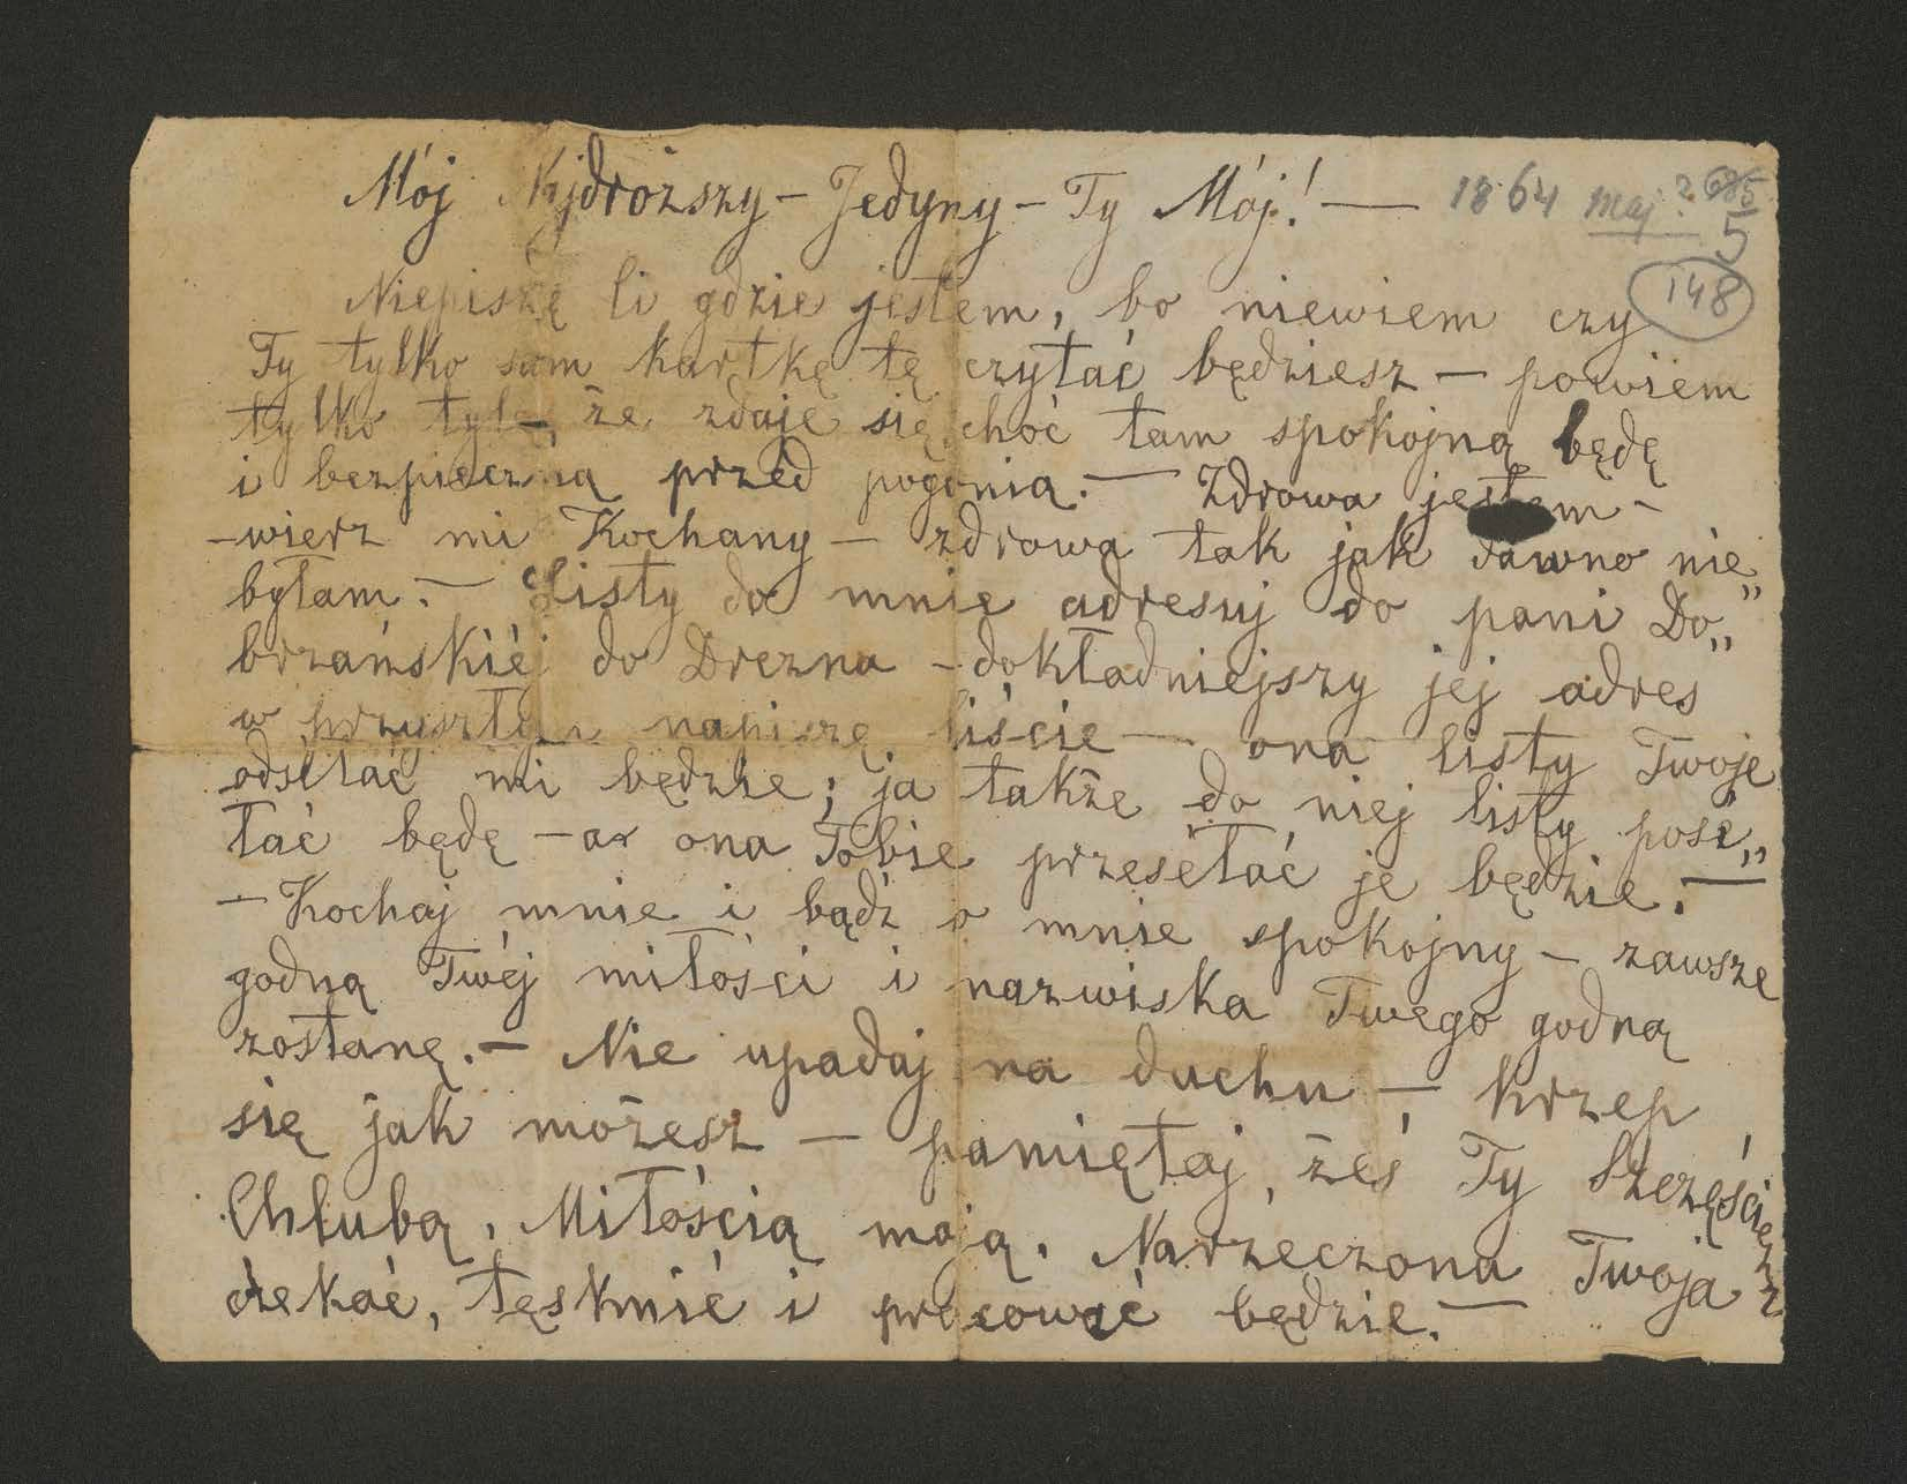 Mój Najdroższy – Jedyny – Ty Mój! — 1864 maj?
5
148
Niepiszę Ci gdzie jestem, bo niewiem czy
Ty tylko sam kartkę tę czytać będziesz – powiem
tylko tyle, że zdaje się choć tam spokojną będę
i bezpieczną przed pogonią. — Zdrowa jestem –
– wierz mi Kochany – zdrowa tak jak dawno nie
byłam. — Listy do mnie adresuj do pani Do„
brzańskiéj do Drezna – dokładniejszy jej adres
w przyszłym napiszę liście — ona listy Twoje
odsełać mi będzie; ja także do niej listy pose„
łać będę – a ona Tobie przesełać je będzie. —
– Kochaj mnie i bądź o mnie spokojny – zawsze
godną Twéj miłości i nazwiska Twego godną
zostanę. – Nie upadaj na duchu – krzep
się jak możesz – pamiętaj, żeś Ty Szczęściem
Chlubą, Miłością moją. Narzeczona Twoja
czekać, tęsknić i pracować będzie. —